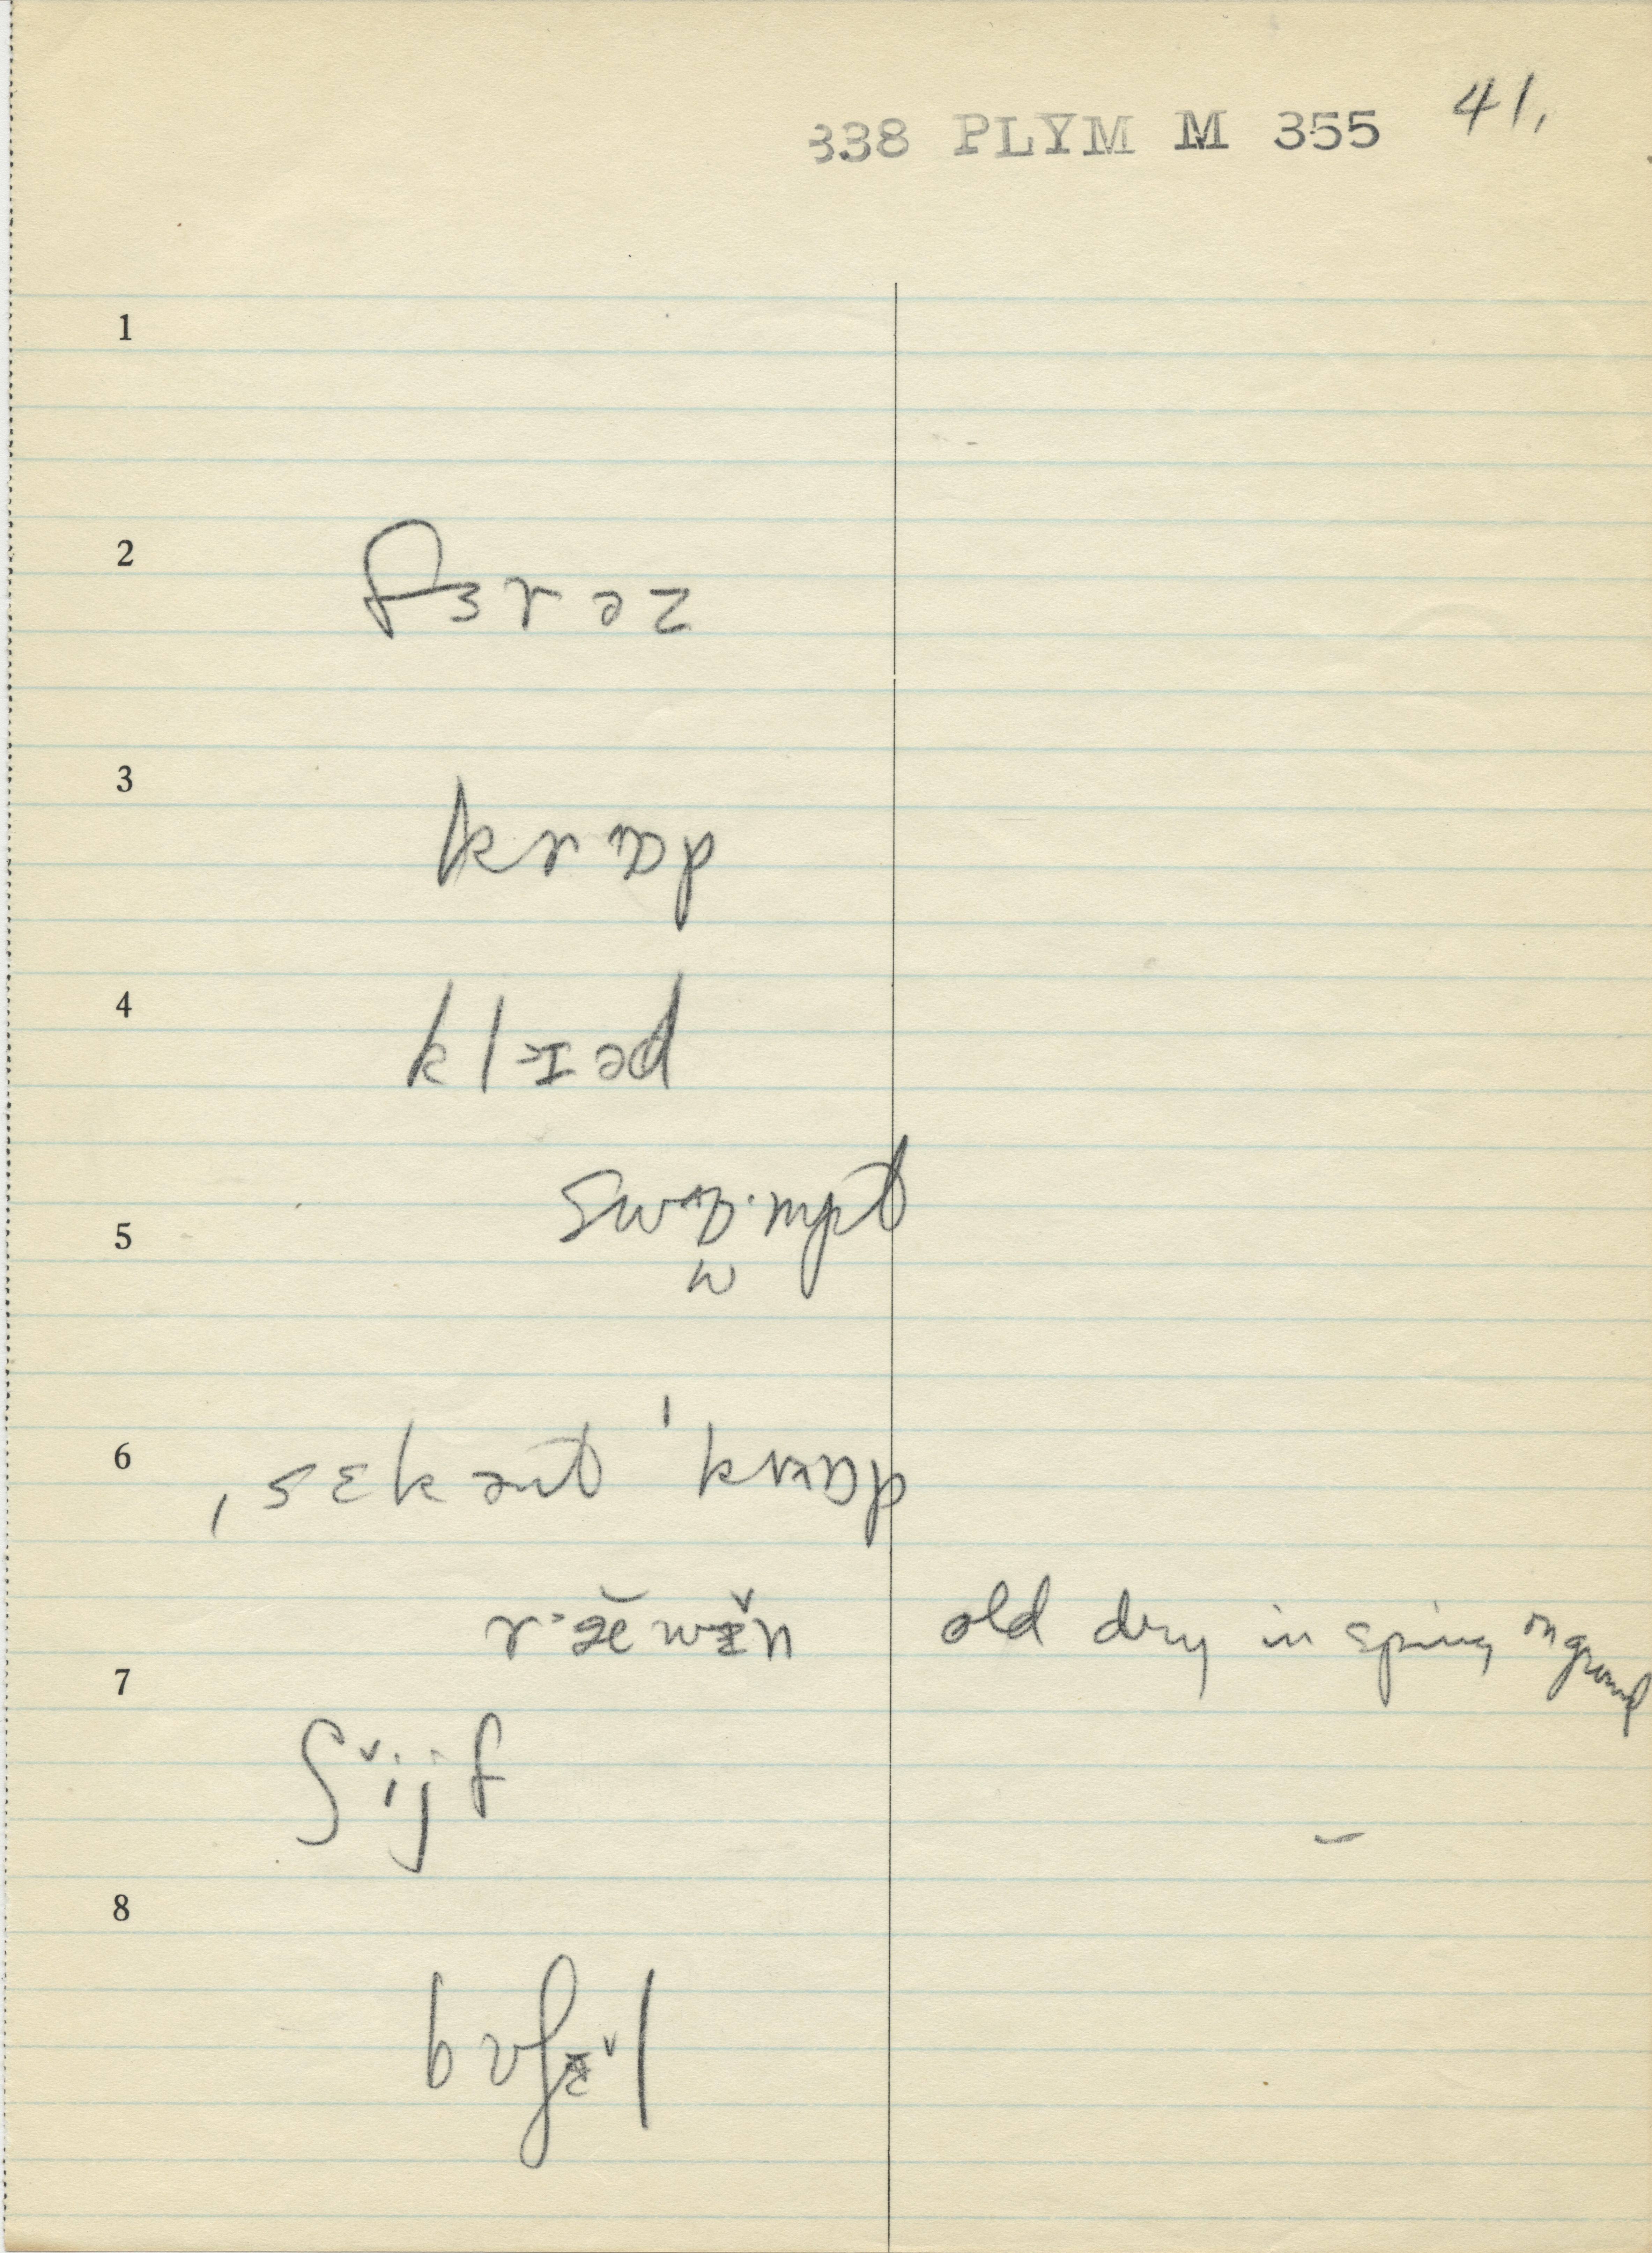 338 PLYM M 355 41.
1
2
fɜrəz
3
krɒp
4
kl ɪəd
5
swɒ·mpt
w
6
ˌsɛkənt ˈkrɒp
r ˃æ̆ wɪ̌n old dry in spring on ground
7
ʃ ˇijf
8
bʊʃɪ̌l